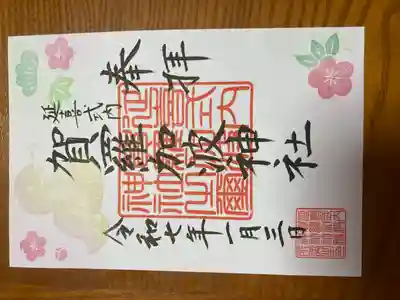 奉拝
延喜式内
賀羅加波神社
令和七年一月三日